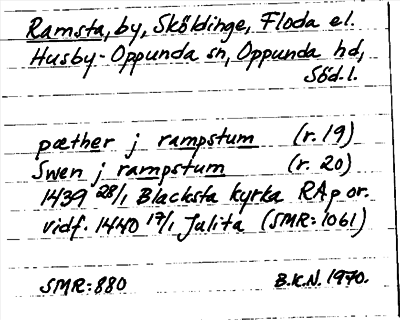 Ramsta, by, Sköldinge, Floda el.
Husby-Oppunda sn, Oppunda hd,
Söd.l.
pæther j rampstum (r. 19)
Swen j rampstum (r. 20)
1439 28/1 Blacksta kyrka RAp or.
vidf. 1440 17/1 Julita (SMR: 1061)
SMR: 880 B.K.N. 1970.